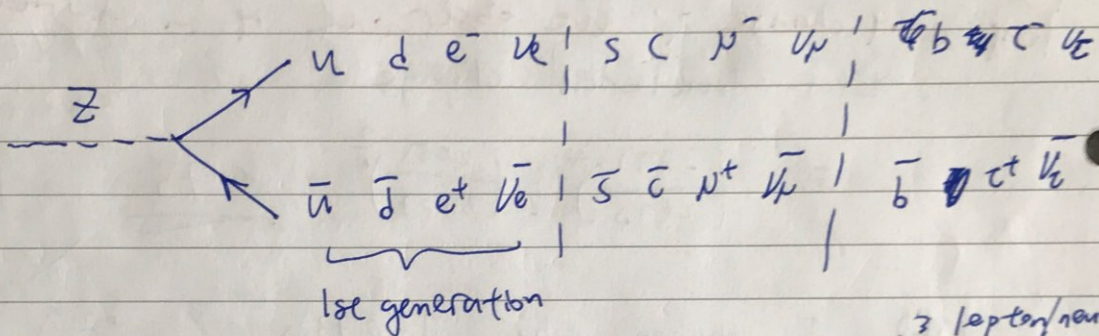 u d e⁻ νe | s c μ⁻ νμ | b τ⁻ ντ
Z
ū d̄ e⁺ ν̄e | s̄ c̄ μ⁺ ν̄μ | b̄ τ⁺ ν̄τ
1st generation
3 lepton/neu